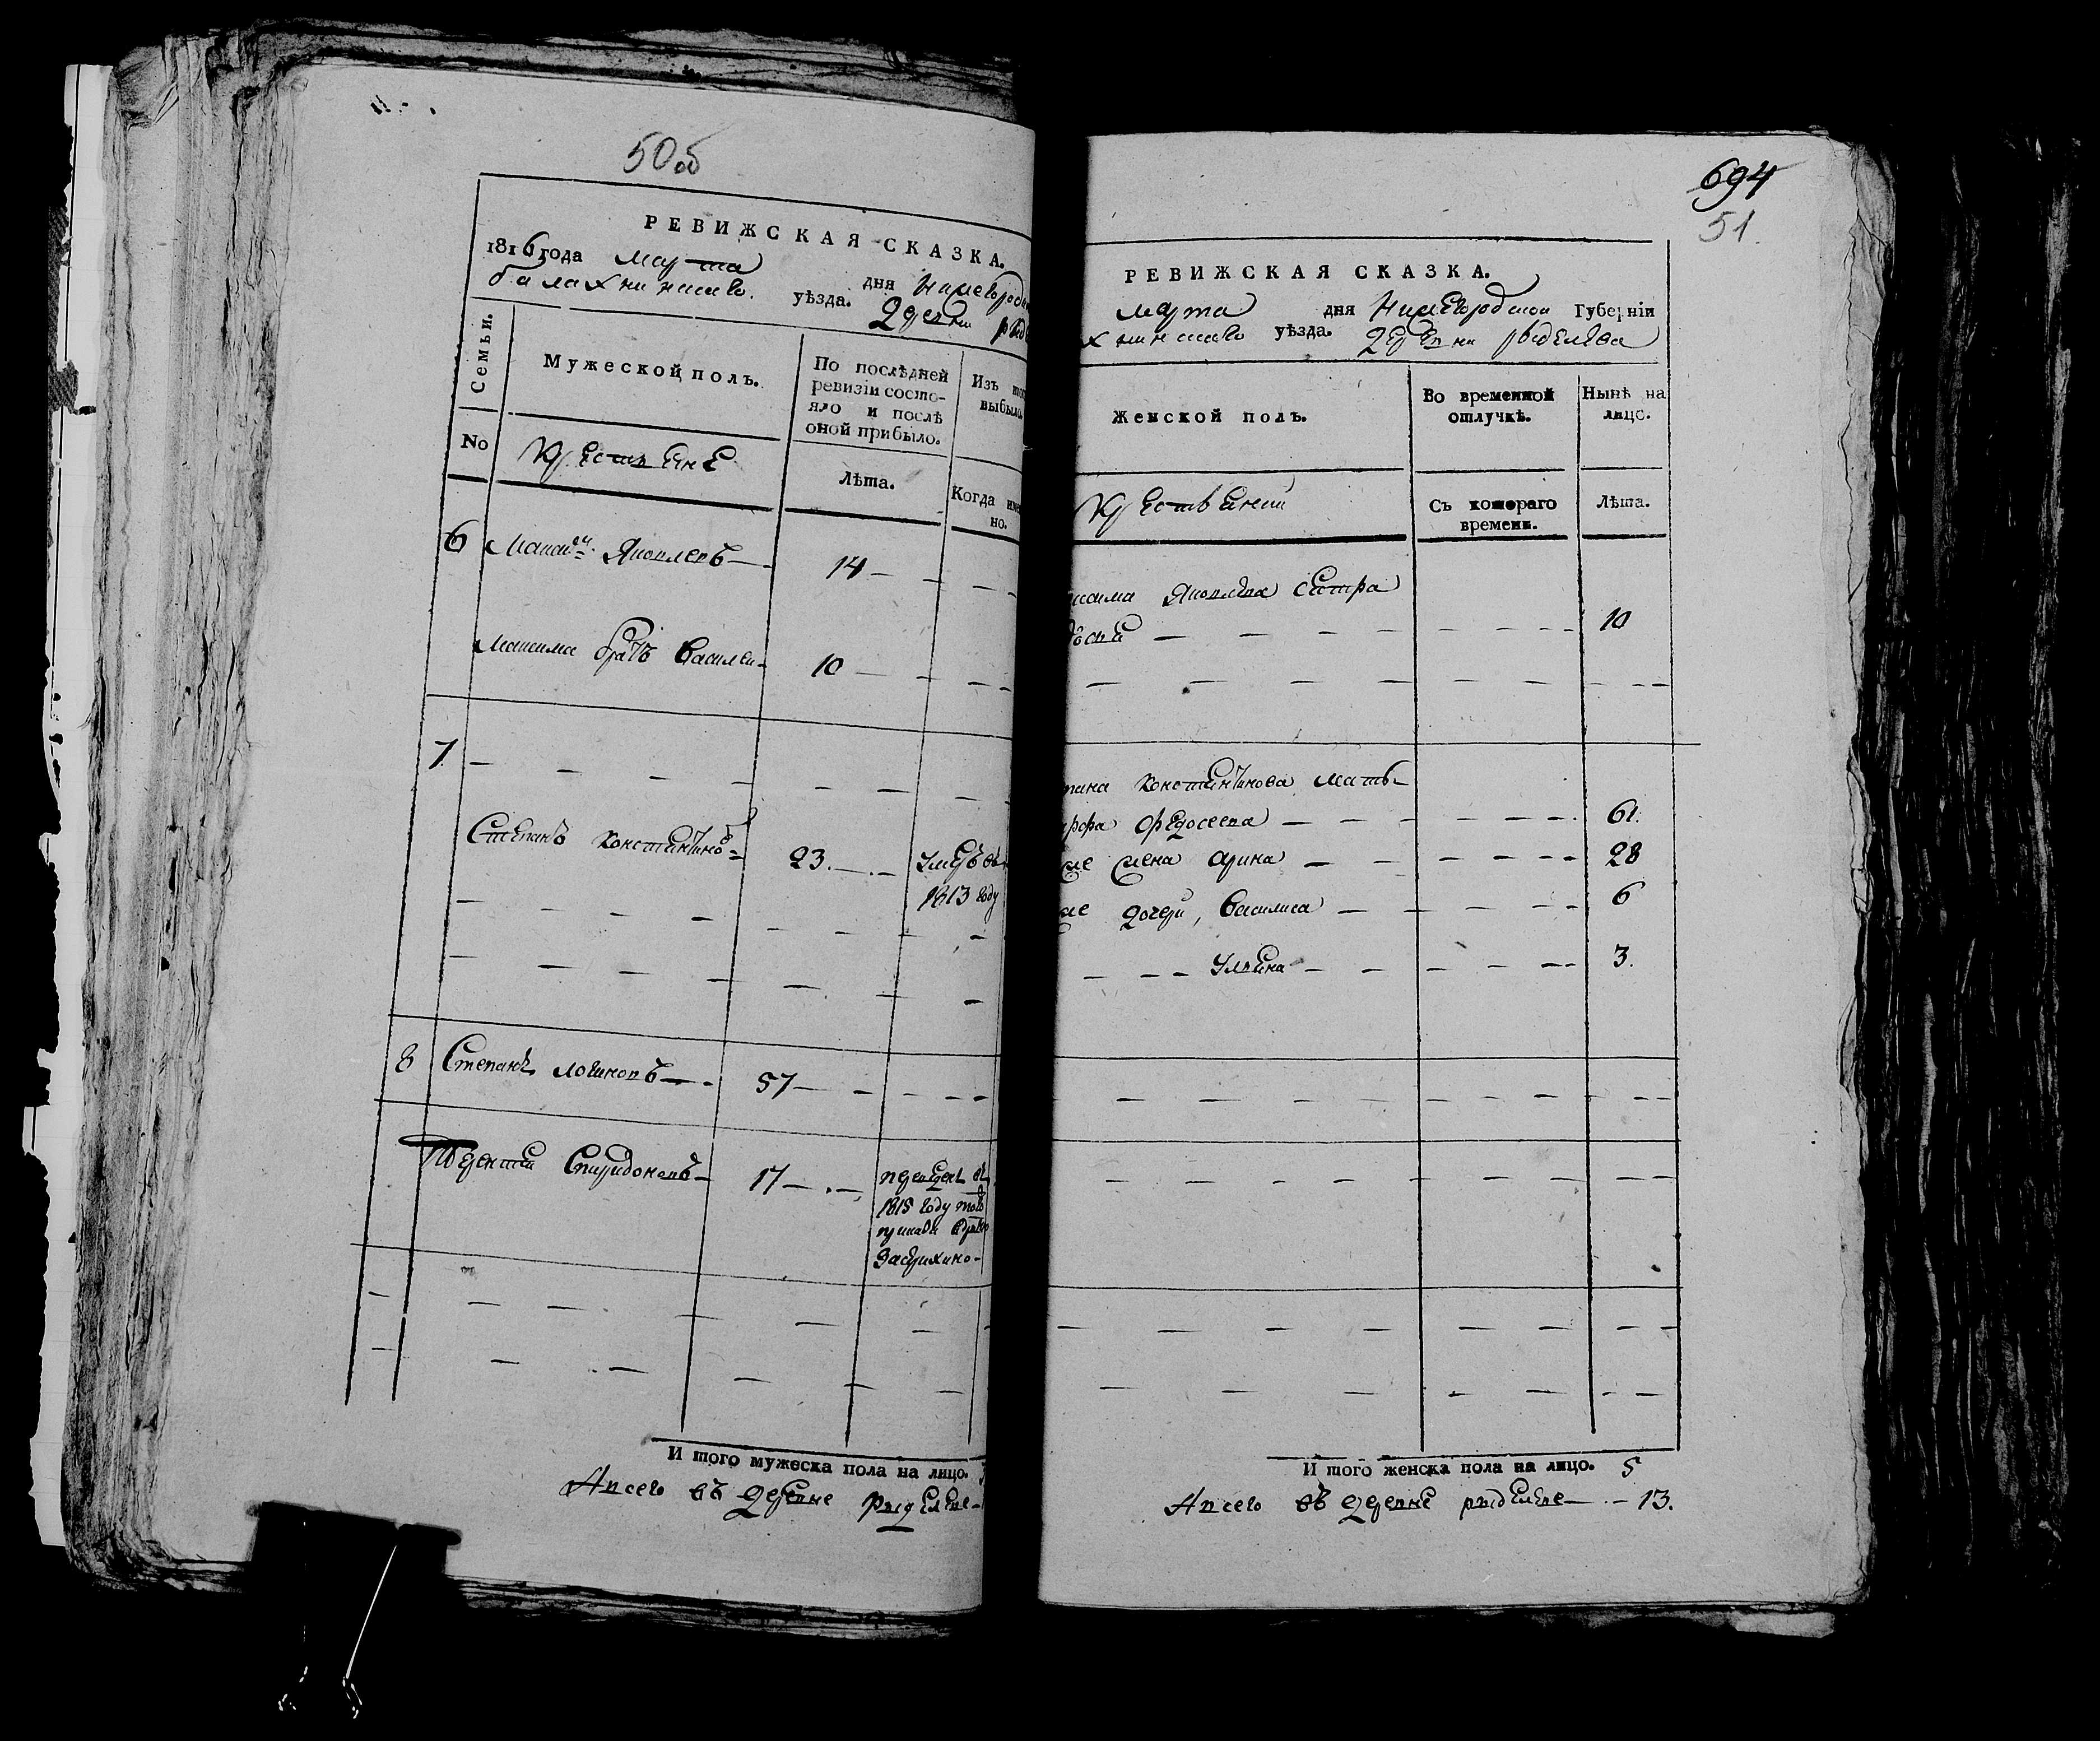 50об
РЕВИЖСКАЯ СКАЗКА.
1816 года марта дня Нижегородс
балахнинскаго уѣзда. деревни рыд
Семьи.
No
Мужеской полъ.
Крестьяне
По послѣдней ревизіи состо-
яло и послѣ
оной прибыло.
Лѣта.
Изъ того
выбыло.
Когда имен
но.
6 Максимъ Яковлевъ 14
Максима братъ Василеи 10
7
Степанъ Константиновъ 23. умре въ
1813 году
8 Степанъ логиновъ 57
Терентеи Спиридоновъ 17 переведенъ въ
1815 году того
Засерихино
И того мужеска пола на лицо.
Авсего въ деревне рыделеве
694
51.
РЕВИЖСКАЯ СКАЗКА.
марта дня Нижегородской Губерніи
хнинскаго уѣзда. деревни рыделева
Женской полъ.
Крестьянки
Во временной
отлучкѣ.
Съ котораго
времени.
Нынѣ на
лицо.
Лѣта.
ксима Яковлева сестра
досья 10
пана Константинова мать
Федосеева 61.
же жена арина 28
же дочери, Василиса 6
Ульяна 3.
И того женска пола на лицо. 5
Авсего въ деревне рыделеве 13.